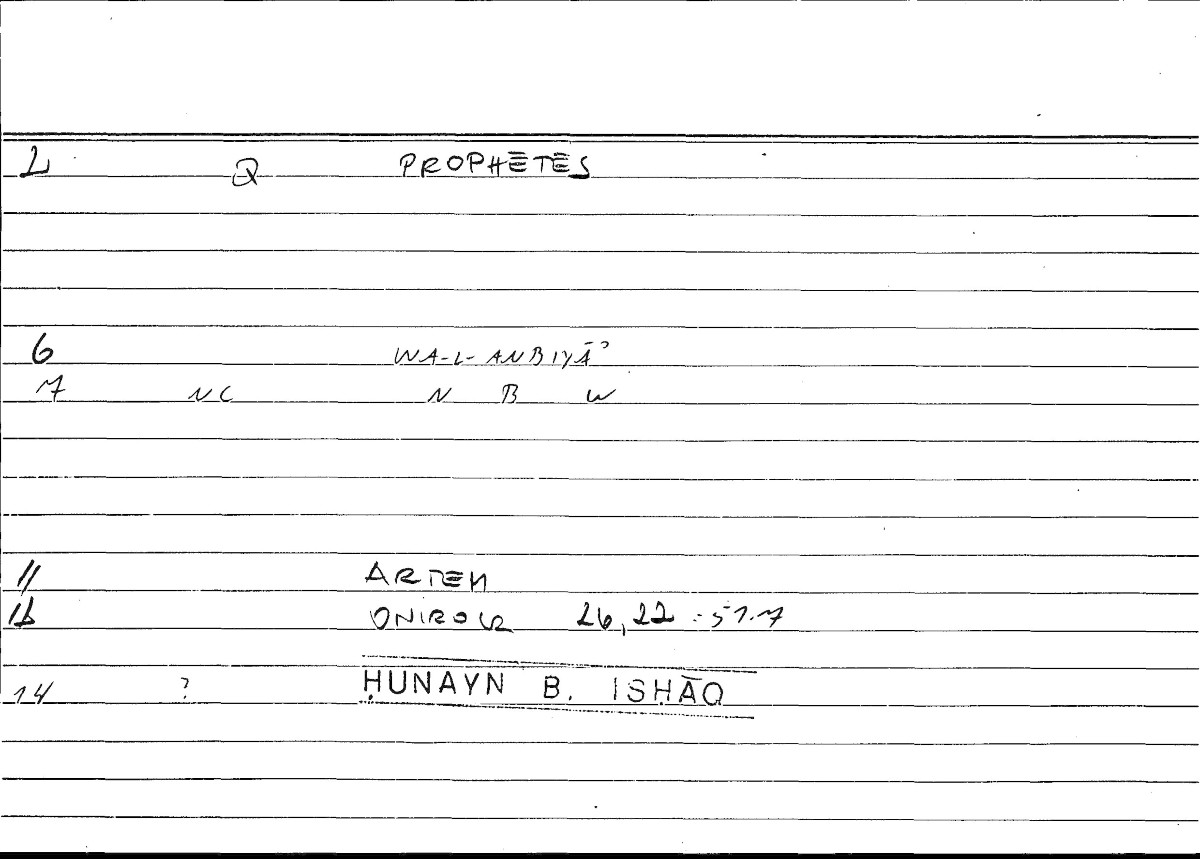 2 Q PROPHĒTĒS
6 WA-L-ANBIYĀʾ
7 NC N B W
11 ARTEM
12 ONIROCR 26,22 = 51.7
14 ? ḤUNAYN B. ISḤĀQ